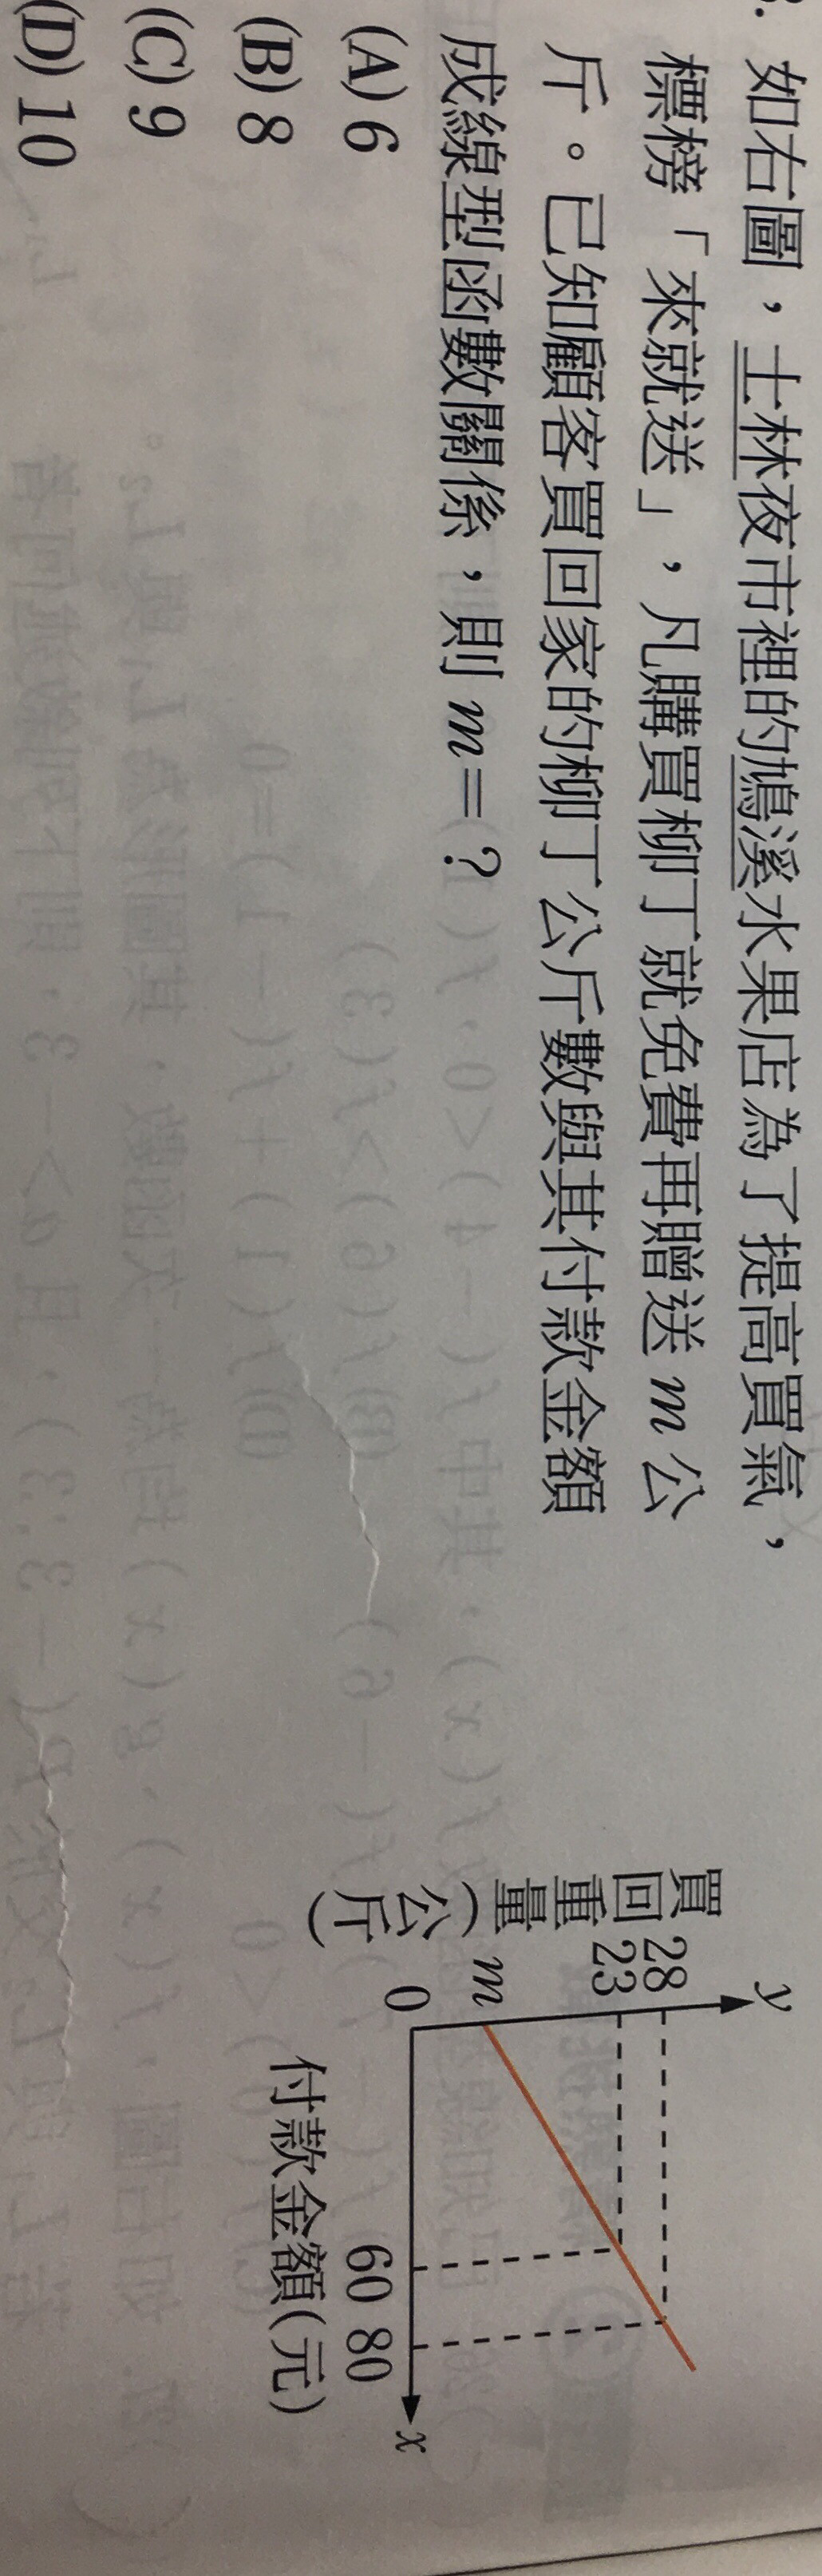 如右圖，士林夜市裡的鳩溪水果店為了提高買氣，
標榜「來就送」，凡購買柳丁就免費再贈送 m 公
斤。已知顧客買回家的柳丁公斤數與其付款金額
成線型函數關係，則 m=？
(A) 6
(B) 8
(C) 9
(D) 10
買回重量(公斤)
y
28
23
m
0
60 80
x
付款金額(元)